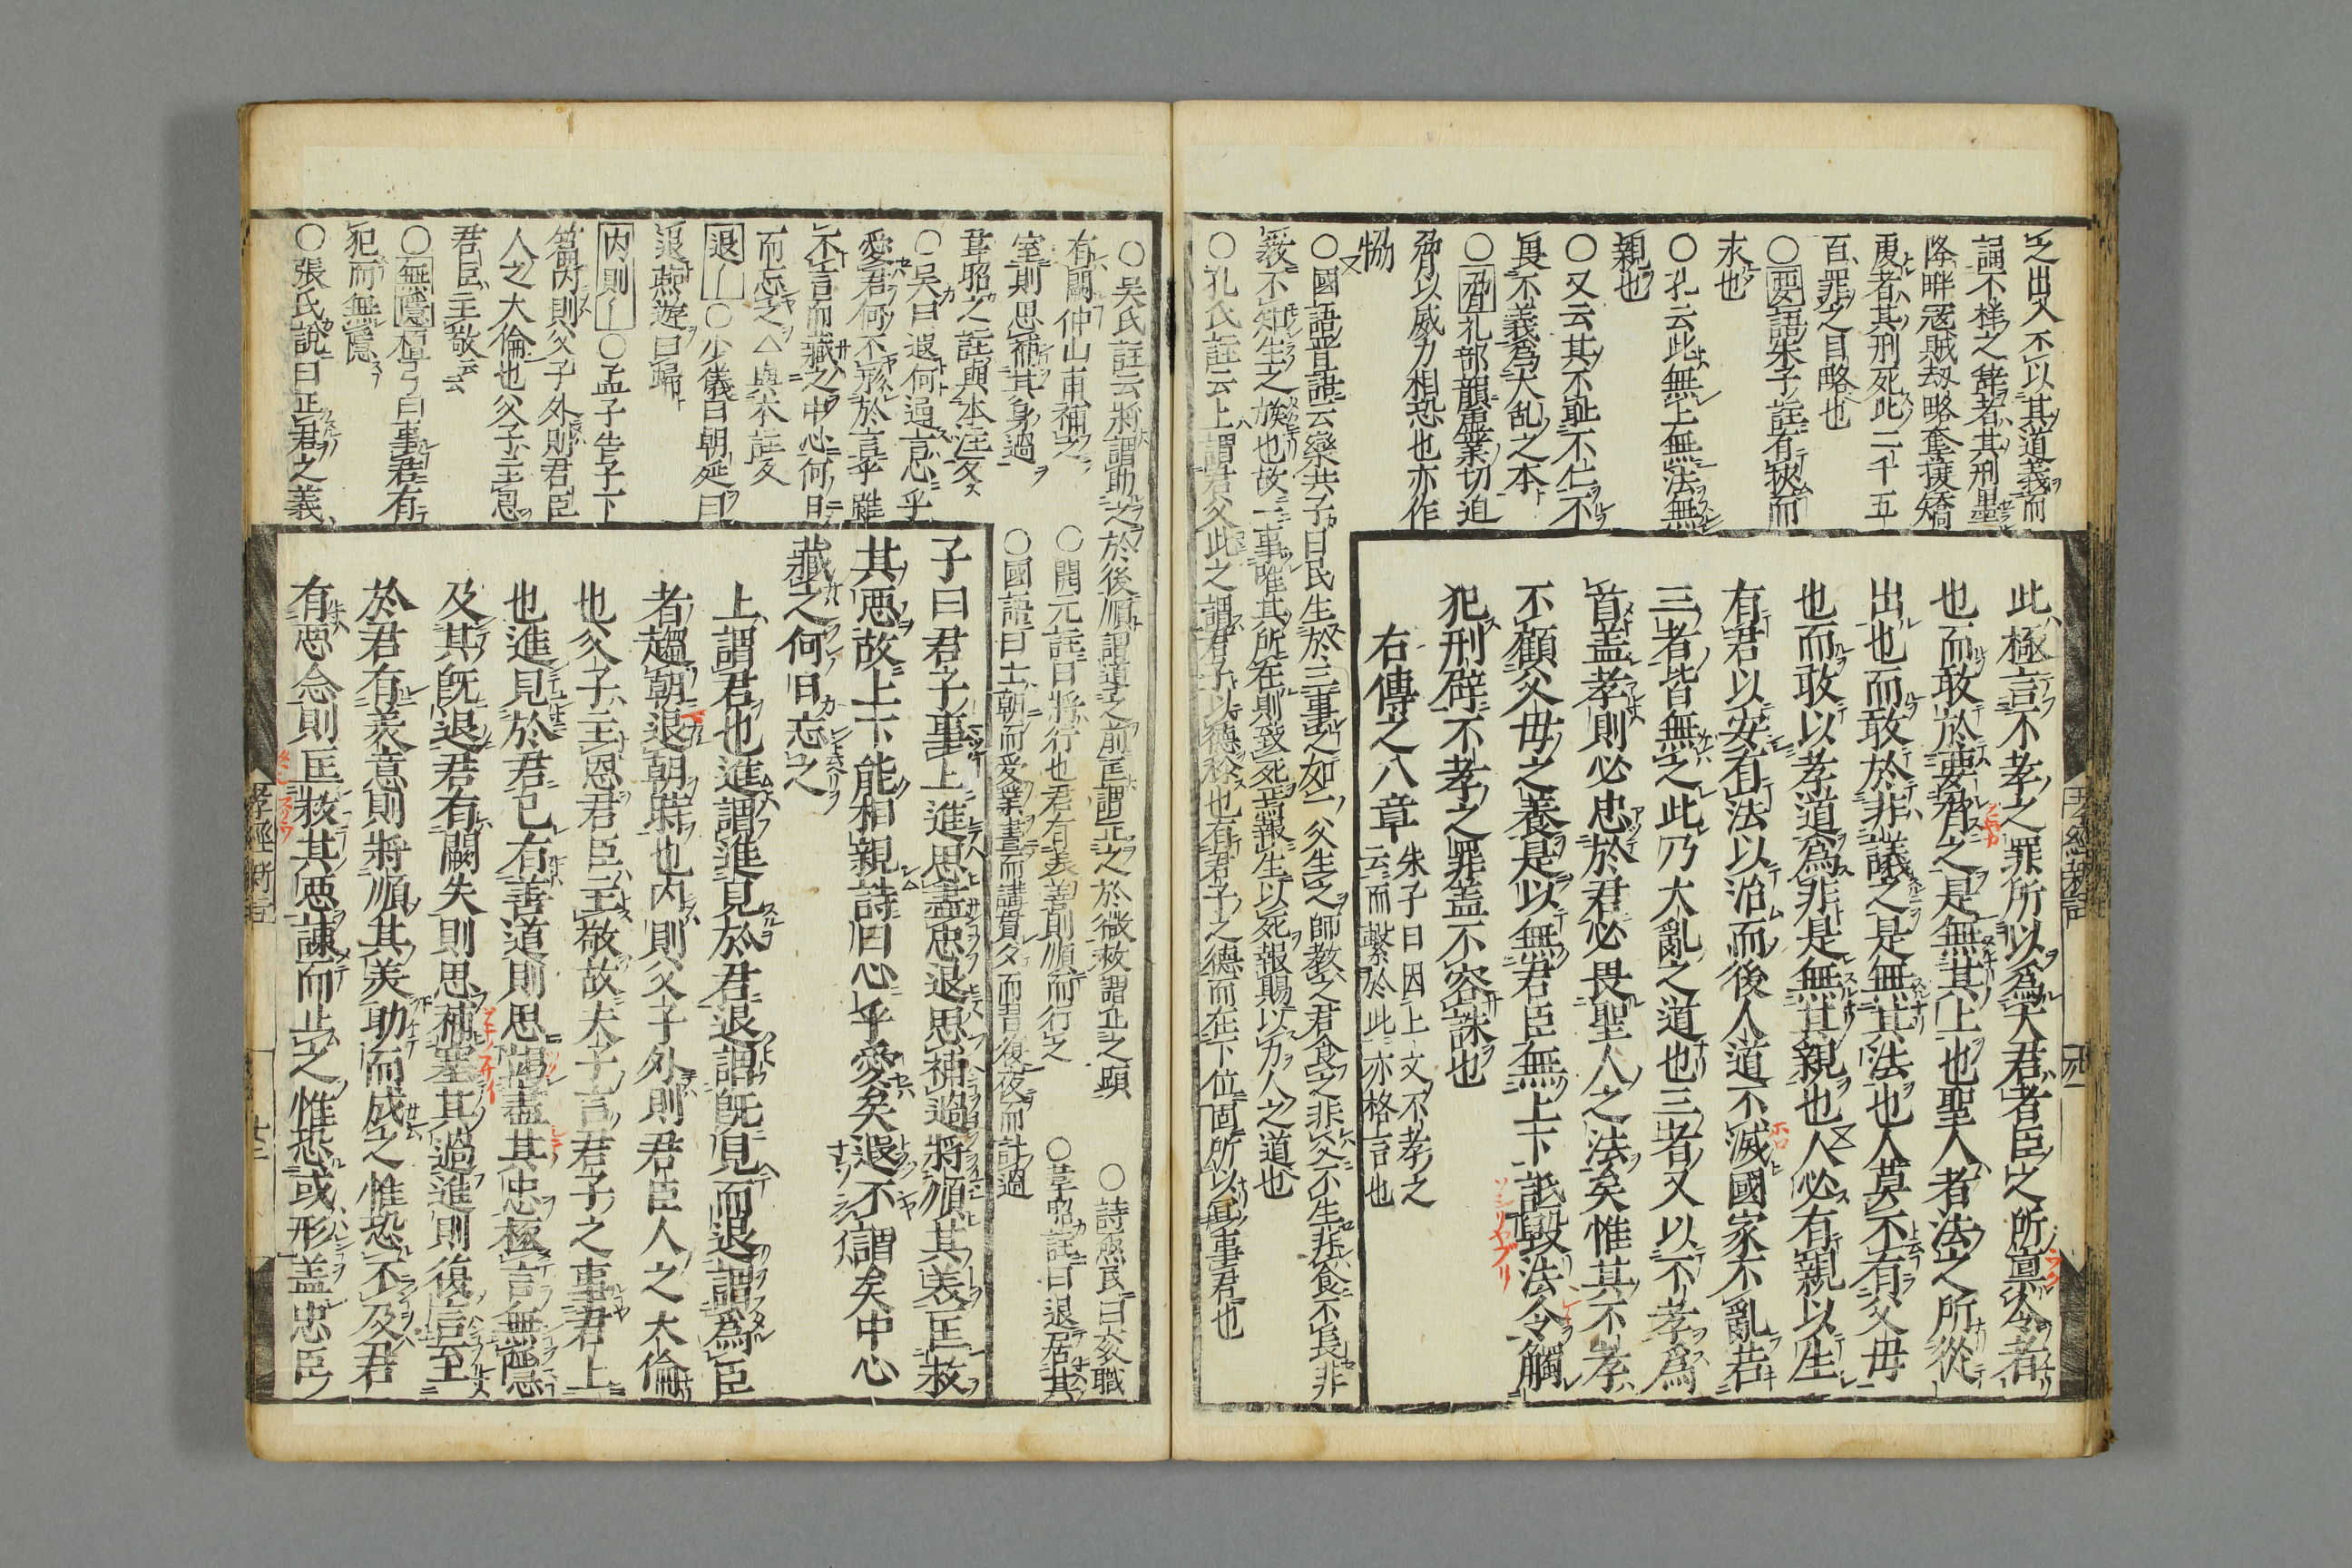 之出入不以其道義而
誦不祥之辞者其刑墨
降畔寇賊劫略奪攘矯
虔者其刑死此二千五
百罪之目略也
○要語朱子註有挾而
求也
○孔云此無上無法無
親也
○又云其不耻不仁不
畏不義為大乱之本
○脅礼部韻虚業切迫
脅以威力相恐也亦作
愶
○國語晋語云欒共子曰民生於三事之如一父生之師教之君食之非父不生非食不長非
教不知生之族也故一事唯其所在則致死焉報生以死報賜以力人之道也
○孔氏註云上謂君父此之謂君子以德称也有君子之德而在下位固所以宜事君也
此極言不孝之罪所以為大君者臣之所禀令者
也而敢於要脅之是無其上也聖人者法之所從
出也而敢於非議之是無其法也人莫不有父母
也而敢以孝道為非是無其親也人必有親以生
有君以安有法以治而後人道不滅國家不亂若
三者皆無之此乃大亂之道也三者又以不孝為
首盖孝則必忠於君必畏聖人之法矣惟其不孝
不顧父母之養是以無君臣無上下詆毀法令觸
犯刑辟不孝之罪盖不容誅也
右傳之八章
朱子曰因上文不孝之
云而繫於此亦格言也
○吴氏註云將謂助之於後順謂道之前匡謂正之於微救謂止之顕
○詩烝民曰衮職
有闕仲山甫補之
○開元註曰將行也君有美善則順而行之
○韋昭註曰退居其
室則思補其身過
○國語曰士朝而受業晝而講貫夕而習復夜而計過
韋昭之註與本注互
○吴曰遐何通言心乎
愛君何不形於言乎雖
不言而藏之中心何日
而忘之△與本註反
退○少儀曰朝延曰
退燕遊曰歸
内則○孟子告子下
篇内則父子外則君臣
人之大倫也父子主恩
君臣主敬云云
○無隱檀弓曰事君有
犯而無隱
○張氏說曰正君之義
子曰君子事上進思盡忠退思補過將順其美匡救
其悪故上下能相親詩曰心乎愛矣遐不謂矣中心
藏之何日忘之
上謂君也進謂進見於君退謂既見而退謂為臣
者趨朝退朝時也内則父子外則君臣人之大倫
也父子主恩君臣主敬故夫子言君子之事君上
也進見於君已有善道則思竭盡其忠極言無隱
及其既退君有闕失則思補塞其過進則復言至
於君有美意則將順其美助而成之惟恐不及君
有悪念則匡救其悪諫而止之惟恐或形盖忠臣